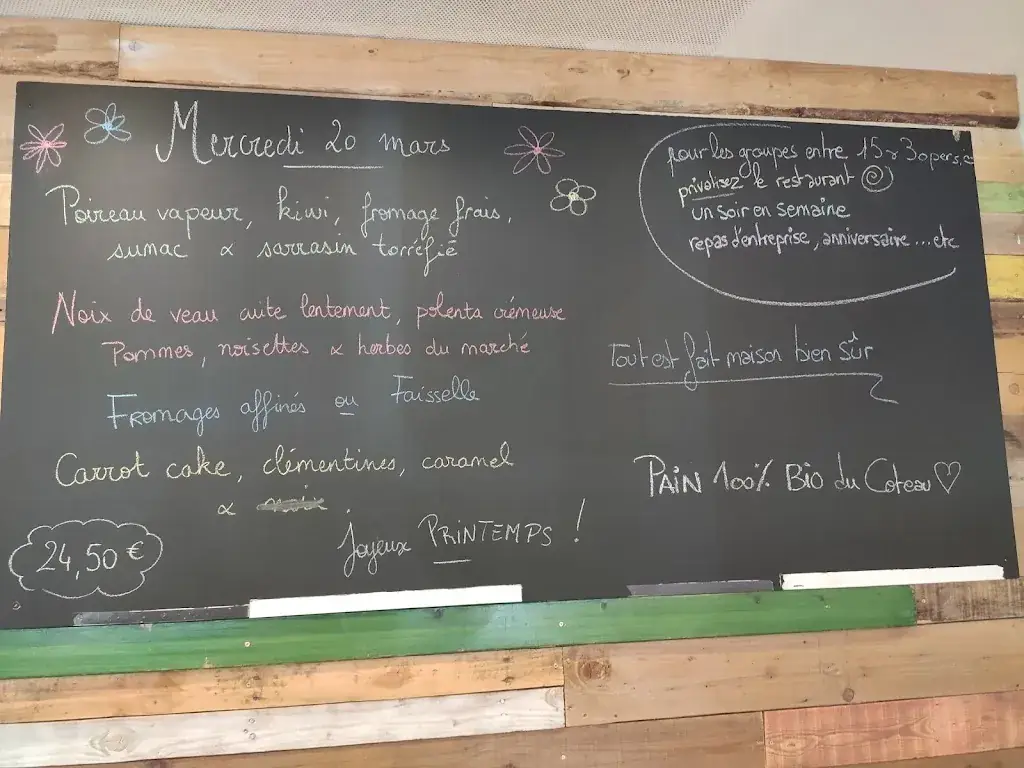 Mercredi 20 mars
Poireau vapeur, kiwi, fromage frais,
sumac & sarrasin torréfié
Noix de veau cuite lentement, polenta crémeuse
Pommes, noisettes & herbes du marché
Fromages affinés ou Faisselle
Carrot cake, clémentines, caramel
&
Joyeux PRINTEMPS !
24,50 €
pour les groupes entre 15 & 30 pers,
privatisez le restaurant
un soir en semaine
repas d'entreprise, anniversaire ... etc
Tout est fait maison bien sûr
PAIN 100% Bio du Coteau ♡